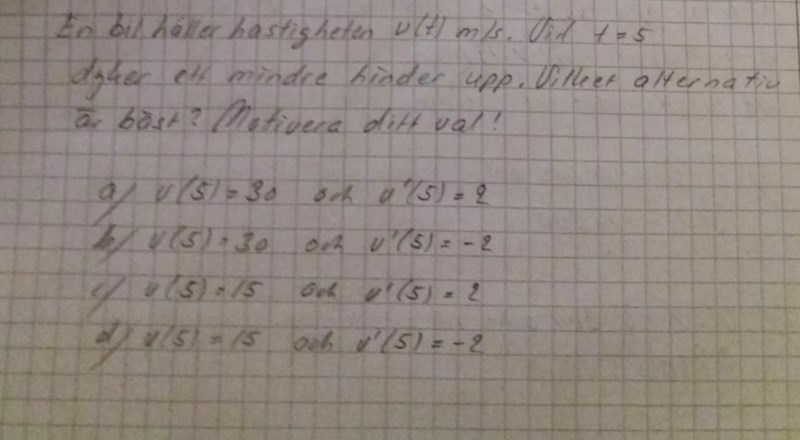 En bil håller hastigheten v(t) m/s. Vid t=5
dyker ett mindre hinder upp. Vilket alternativ
är bäst? Motivera ditt val!
a) v(5)=30 och v'(5)=2
b) v(5)=30 och v'(5)=-2
c) v(5)=15 och v'(5)=2
d) v(5)=15 och v'(5)=-2